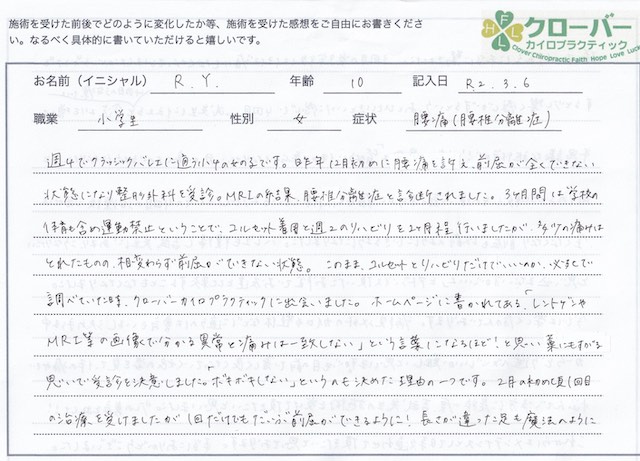 施術を受けた前後でどのように変化したか等、施術を受けた感想をご自由にお書きくださ
い。なるべく具体的に書いていただけると嬉しいです。
HFLL
クローバー
カイロプラクティック
Clover Chiropractic Faith Hope Love Luck
お名前（イニシャル） R.Y. 年齢 10 記入日 R2.3.6
職業 小学生 性別 女 症状 腰痛(腰椎分離症)
週4でクラッシックバレエに通う小4の女の子です。昨年12月初めに腰痛を訴え、前屈が全くできない
状態になり整形外科を受診。MRIの結果、腰椎分離症と診断されました。3ヶ月間は学校の
体育も含め運動禁止ということで、コルセット着用と週2のリハビリを2ヶ月程行いましたが、痛みは
とれたものの、相変わらず前屈ができない状態。このまま、コルセットとリハビリだけでいいのか、必死で
調べていた時、クローバーカイロプラクティックに出会いました。ホームページに書かれてある、「レントゲンや
MRI等の画像で分かる異常と痛みは一致しない」という言葉になるほど!と思い、藁にもすがる
思いで受診を決意しました。「ボキボキしない」というのも決めた理由の一つです。2月の初め頃1回目
の治療を受けましたが1回だけでもだいぶ前屈ができるように!長さが違った足も魔法のように